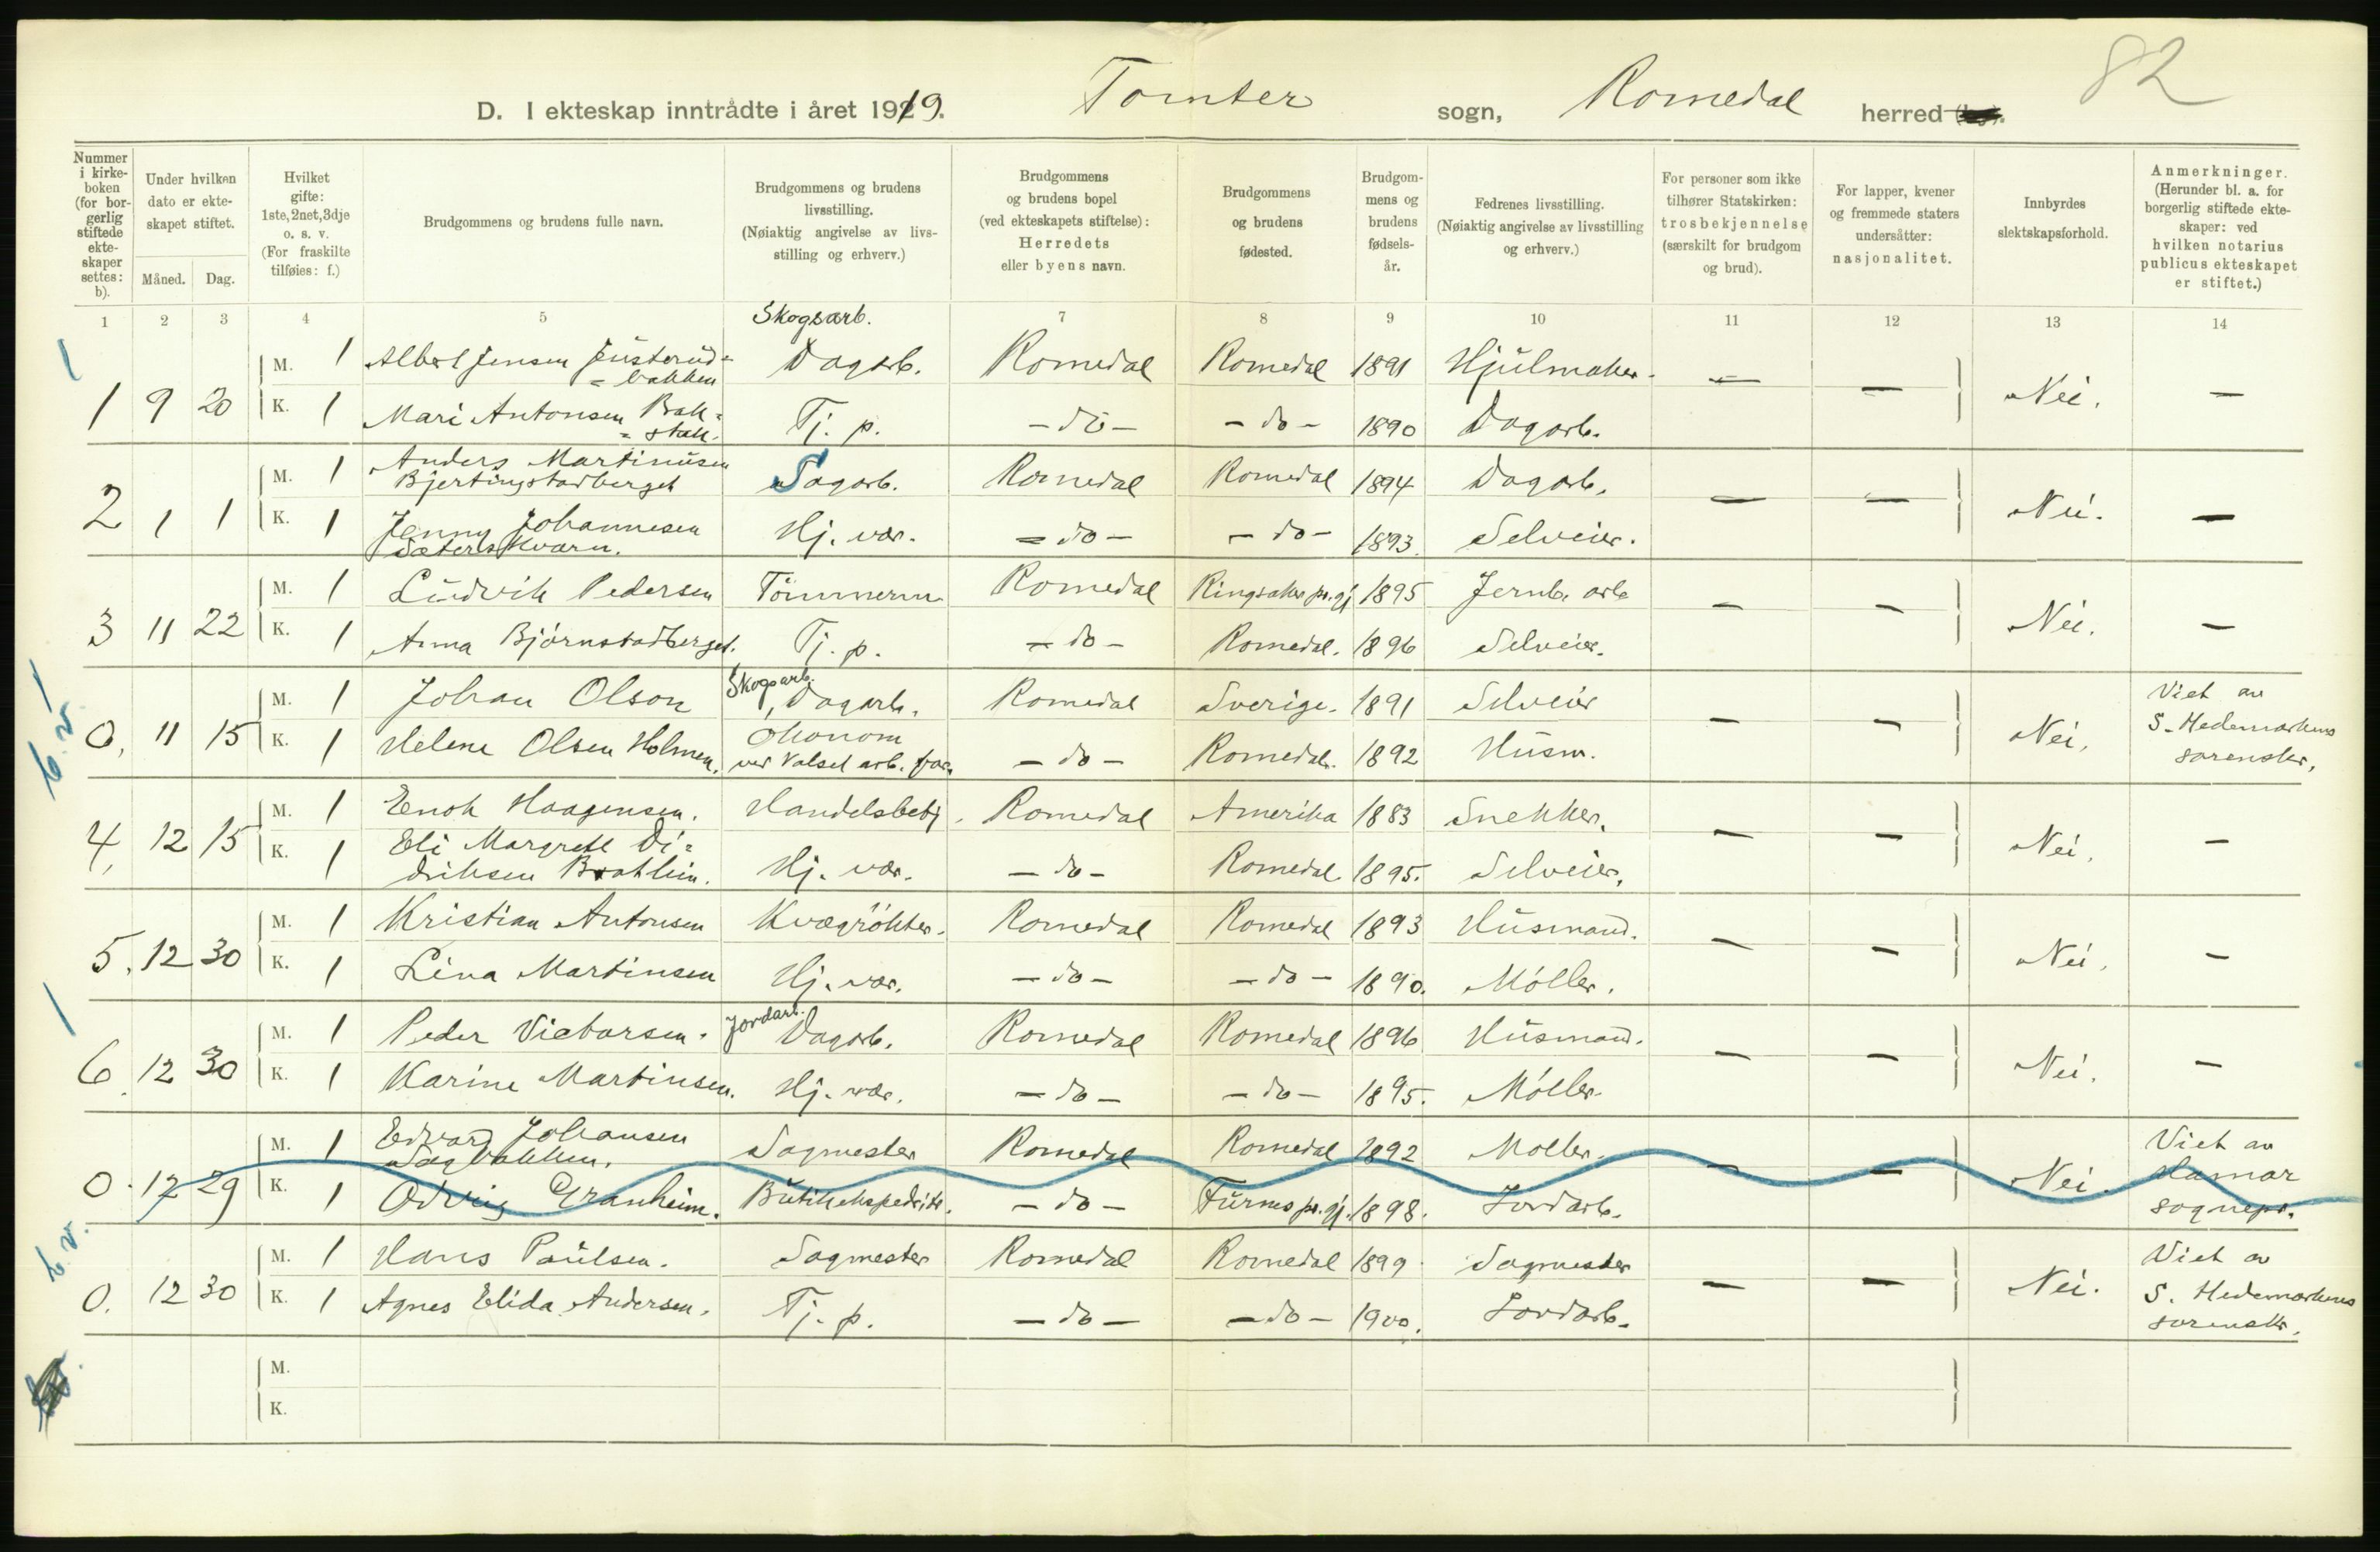 82
D. I ekteskap inntrådte i året 1919. Tomter sogn, Romedal herred
Nummer i kirkeboken (for borgerlig stiftede ekteskaper settes: b).
Under hvilken dato er ekteskapet stiftet.
Måned. Dag.
Hvilket gifte: 1ste, 2net, 3dje o. s. v. (For fraskilte tilføies: f.)
Brudgommens og brudens fulle navn.
Brudgommens og brudens livsstilling. (Nøiaktig angivelse av livsstilling og erhverv.)
Brudgommens og brudens bopel (ved ekteskapets stiftelse): Herredets eller byens navn.
Brudgommens og brudens fødested.
Brudgommens og brudens fødselsår.
Fedrenes livsstilling. (Nøiaktig angivelse av livsstilling og erhverv.)
For personer som ikke tilhører Statskirken: trosbekjennelse (særskilt for brudgom og brud).
For lapper, kvener og fremmede staters undersåtter: nasjonalitet.
Innbyrdes slektskapsforhold.
Anmerkninger. (Herunder bl. a. for borgerlig stiftede ekteskaper: ved hvilken notarius publicus ekteskapet er stiftet.)
1 2 3 4 5 7 8 9 10 11 12 13 14
Skogsarb.
M. 1 Albert Jensen Justerud=
=bakken Dagarb. Romedal Romedal 1891 Hjulmaker. — —
1 9 20 K. 1 Mari Antonsen Bak=
=stak. Tj. p. – do – – do – 1890 Dagarb. Nei. —
M. 1 Anders Martinusen
Bjertingstadberget Sagarb. Romedal Romedal 1894 Dagarb. — —
2 1 1 K. 1 Jenny Johannesen
Sæterskvarn. Hj. vær. – do – – do – 1893. Selveier. Nei. —
M. 1 Ludvik Pedersen Tömmerm. Romedal Ringsaker pr.gj. 1895 Jernb. arb. — —
3 11 22 K. 1 Anna Bjørnstadberget. Tj. p. – do – Romedal. 1896 Selveier. Nei. —
b.v.
M. 1 Johan Olson Skogsarb. Dagarb. Romedal Sverige. 1891 Selveier — —
0, 11 15 K. 1 Helene Olsen Holmen. Økonom
ved Valset arb. for. – do – Romedal. 1892 Husm. Nei. Viet av
S. Hedemarkens
sorenskr.
M. 1 Enok Haagensen. Handelsbetj. Romedal Amerika 1883 Snekker. — —
4, 12 15 K. 1 Eli Margrete Di=
driksen Brahlim. Hj. vær. – do – Romedal 1895. Selveier. Nei. —
M. 1 Kristian Antonsen Kvægrökter. Romedal Romedal 1893 Husmand. — —
5. 12 30 K. 1 Lina Martinsen Hj. vær. – do – – do – 1890. Møller. Nei. —
M. 1 Peder Victorsen. Jordarb. Dagarb. Romedal Romedal 1896 Husmand. — —
6. 12 30 K. 1 Karine Martinsen. Hj. vær. – do – – do – 1895. Møller. Nei. —
M. 1 Edvard Johansen
Sagbakken. Sagmester Romedal Romedal 1892 Møller. — —
0. 12 29 K. 1 Odvig Granheim. Butikekspeditr. – do – Furnes pr.gj. 1898. Jordarb. Nei. Viet av
Hamar
sognepr.
b.v.
M. 1 Hans Paulsen. Sagmester Romedal Romedal 1899 Sagmester — —
0. 12 30 K. 1 Agnes Elida Andersen. Tj. p. – do – – do – 1900. Jordarb. Nei. Viet av
S. Hedemarkens
sorenskr.
M.
K.